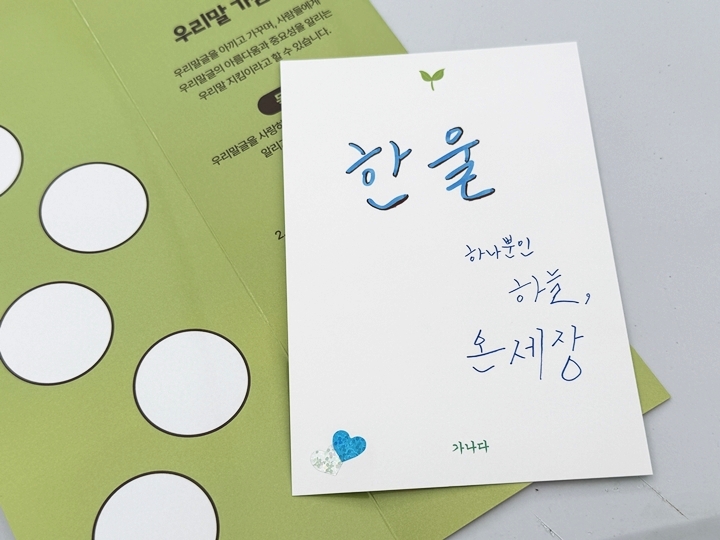 우리말
우리말글을 아끼고 가꾸며, 사람들에게
우리말글의 아름다움과 중요성을 알리는
우리말 지킴이라고 할 수 있습니다.
우리말글을 사랑하
알리
한울
하나뿐인
하늘,
온세장
가나다